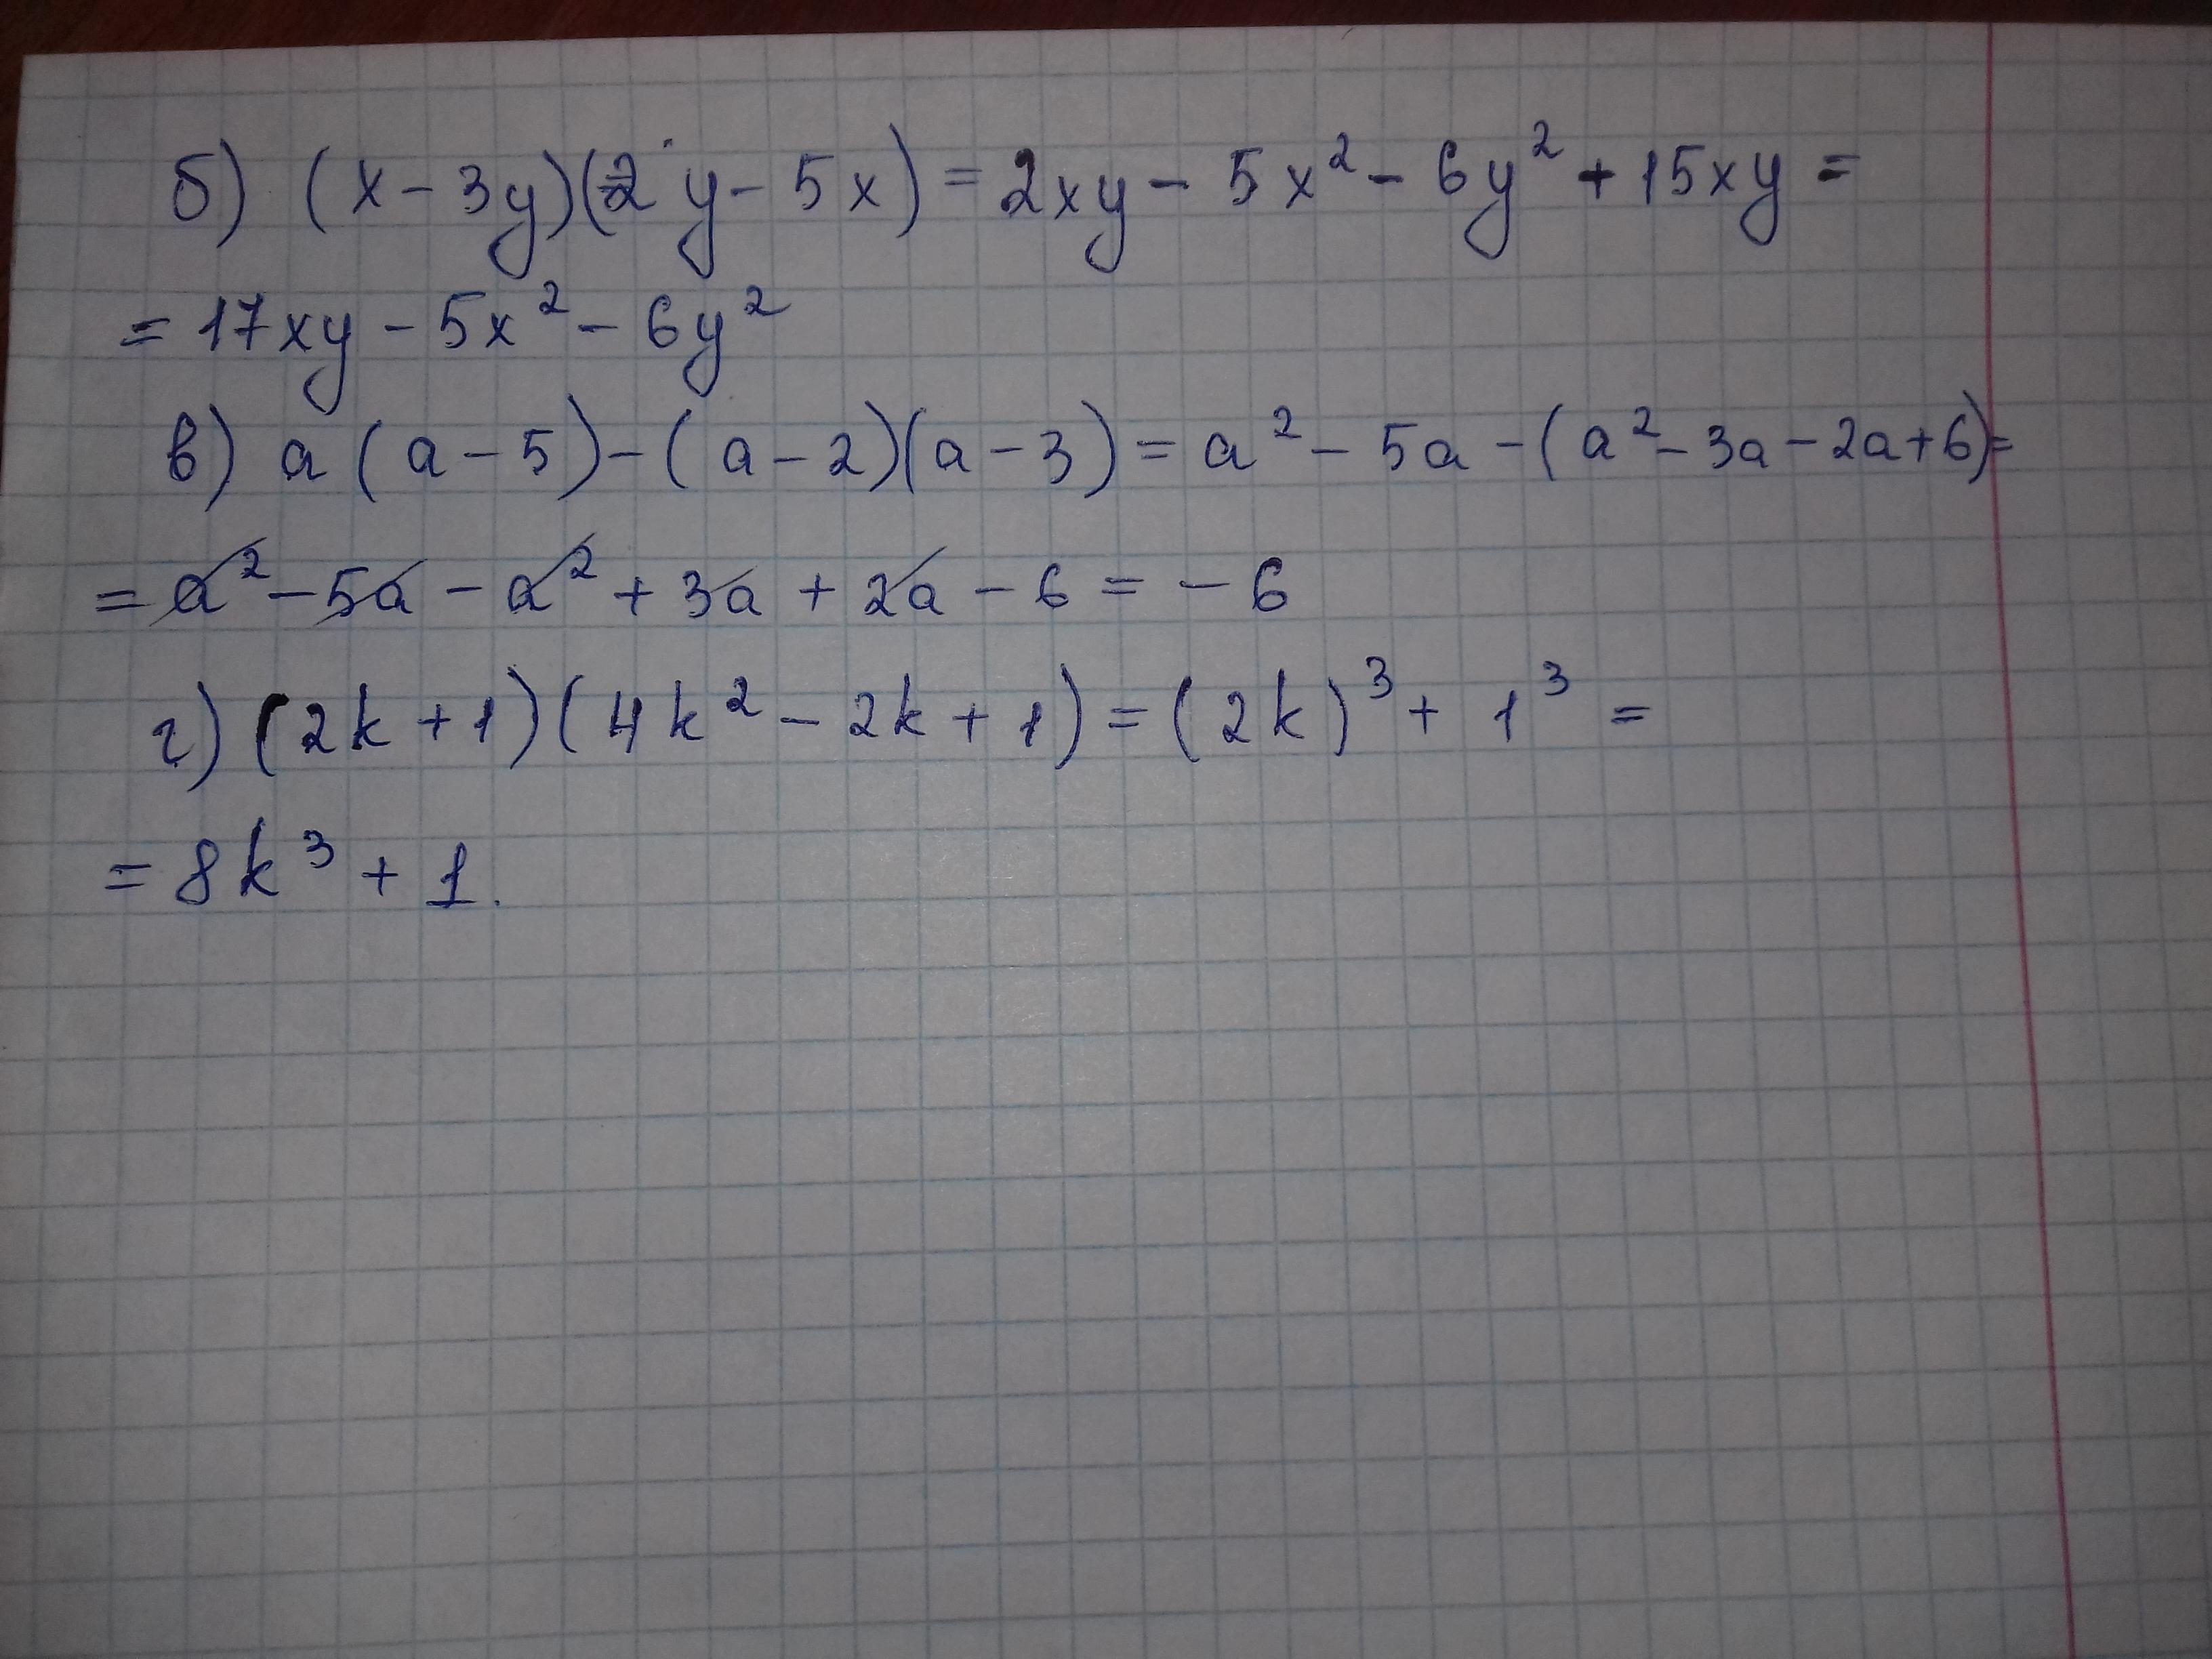 б) (x - 3y)(2y - 5x) = 2xy - 5x² - 6y² + 15xy =
= 17xy - 5x² - 6y²
в) a(a - 5) - (a - 2)(a - 3) = a² - 5a - (a² - 3a - 2a + 6) =
= a² - 5a - a² + 3a + 2a - 6 = - 6
г) (2k + 1)(4k² - 2k + 1) = (2k)³ + 1³ =
= 8k³ + 1.